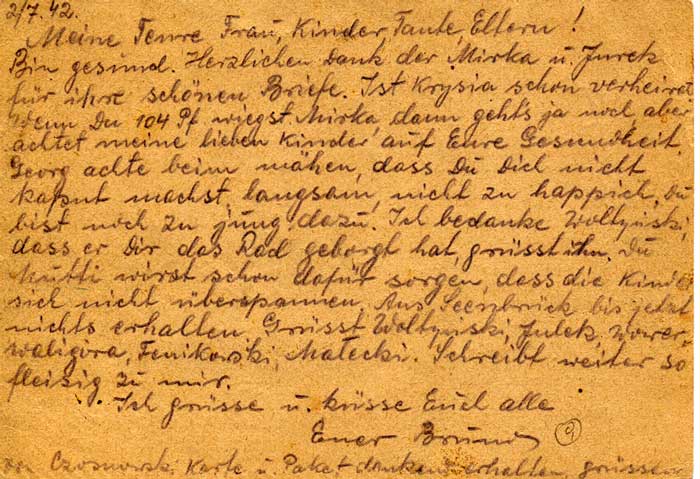 2/7. 42.
Meine Teure Frau, Kinder, Tante, Eltern!
Bin gesund. Herzlichen Dank der Mirka u. Jurek
für ihre schönen Briefe. Ist Krysia schon verheirat
Wenn Du 104 Pf wiegst, Mirka, dann geht's ja noch, aber
achtet meine lieben Kinder auf Eure Gesundheit.
Georg achte beim mähen, dass Du Dich nicht
kaput machst, langsam, nicht zu happich, Du
bist noch zu jung dazu. Ich bedanke Woltynski,
dass er Dir das Rad geborgt hat, grüsst ihn. Du
Mutti wirst schon dafür sorgen, dass die Kinde
sich nicht überspannen. Aus bis jetzt
nichts erhalten. Grüsst Woltynski, Julek,
waligóra, Fenikowski, Małecki. Schreibt weiter so
fleißig zu mir.
Ich grüsse u. küsse Euch alle
Euer Bruno
9
von Czosnowsk. Karte u. Paket dankend erhalten, grüssen